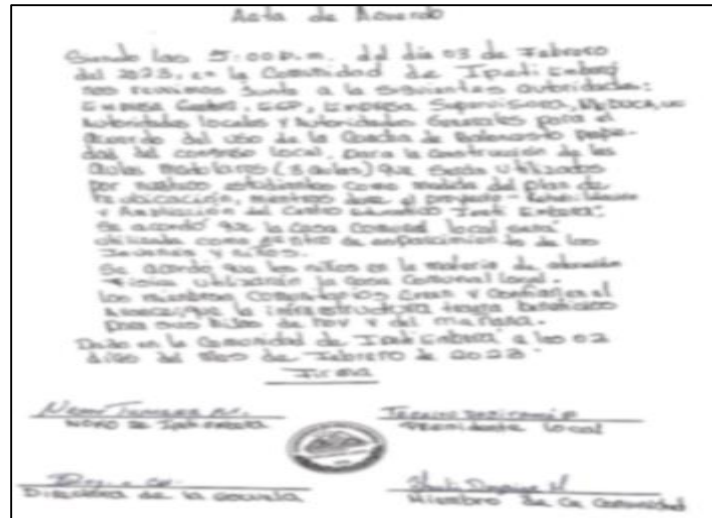 Acta de Acuerdo
Siendo las 5:00 p.m. del día 03 de Febrero
del 2023, en la Comunidad de Ipeti Emberá
nos reunimos Junto a la siguientes autoridades:
Empresa Supervisora, MEDUCA,
Autoridades locales y Autoridades Generales para el
Acuerdo del uso de la Cancha de Baloncesto
del congreso local, para la construcción de las
aulas modulares (3 aulas) que serán utilizados
por nuestros estudiantes como medida del plan de
reubicación, mientras dure el proyecto -
y Ampliación del Centro Educativo Ipeti Emberá.
Se acordó que la casa comunal local será
utilizada como centro de esparcimiento de los
Jovenes y niños.
Se acordo que los niños en la materia de
Física utilizarán la casa Comunal local.
Los miembros y Confían en el
que la infraestructura tenga beneficios
para sus hijos de hoy y del mañana.
Dado en la Comunidad de Ipeti Emberá a los 02
días del Mes de Febrero de 2023.
Firma
NOKO de Ipeti Emberá
Presidente local
Directora de la escuela
Miembro de la Comunidad